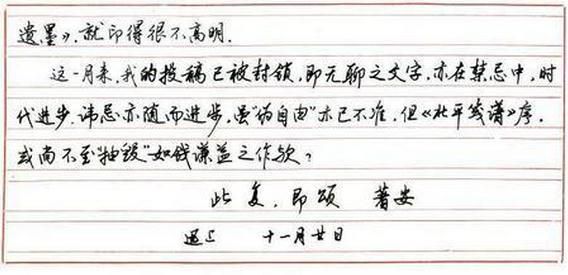 遗墨》,就印得很不高明.
这一月来,我的投稿已被封锁,即无聊之文字,亦在禁忌中,时
代进步,讳忌亦随而进步,虽"伪自由"亦已不准,但《北平笺谱》序,
或尚不至"抽毁"如钱谦益之作欤?
此复,即颂 著安
迅上 十一月廿日